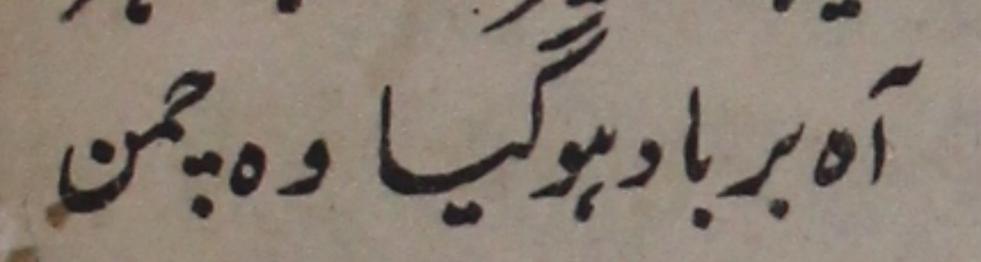 آہ برباد ہوگیا وہ چمن